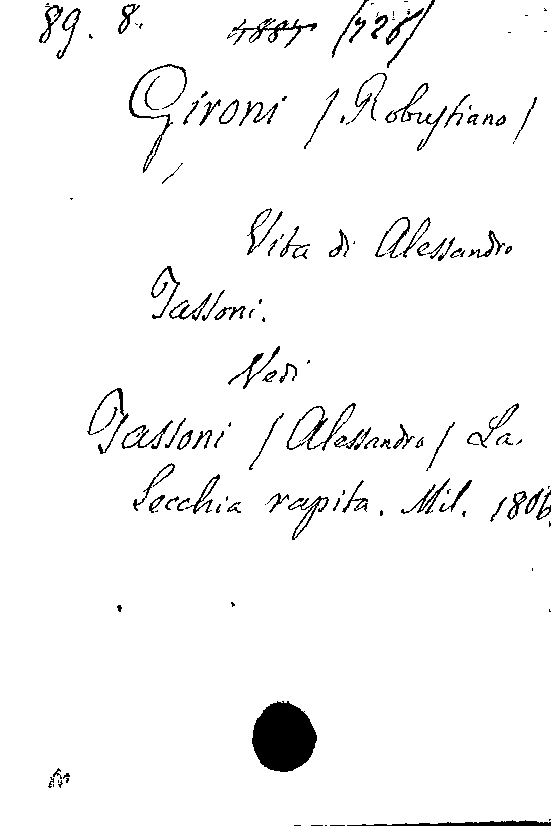 89. 8. 4884 (728)
Gironi / Robustiano /
Vita di Alessandro
Tassoni.
Vedi
Tassoni / Alessandro / La
Secchia rapita. Mil. 1806